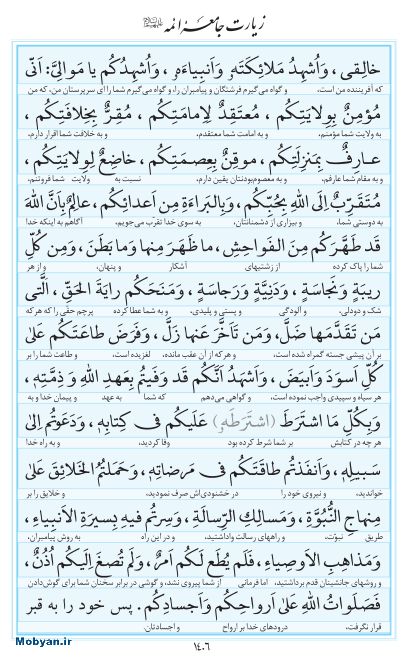 زیارت جامعهٔ ائمه علیهم‌السلام
خالِقی، وَاُشهِدُ مَلائِکَتَهُ وَاَنبِیاءَهُ، وَاُشهِدُکُم یا مَوالِیَّ: اَنّی
که آفریننده من است، و گواه می‌گیرم فرشتگان و پیامبران را، و گواه می‌گیرم شما را ای سرپرستان من، که من
مُؤمِنٌ بِوِلایَتِکُم، مُعتَقِدٌ لِاِمامَتِکُم، مُقِرٌّ بِخِلافَتِکُم،
به ولایت شما مؤمنم، و به امامت شما معتقدم، و به خلافت شما اقرار دارم،
عارِفٌ بِمَنزِلَتِکُم، موقِنٌ بِعِصمَتِکُم، خاضِعٌ لِوِلایَتِکُم،
و به مقام شما عارفم، و به معصوم‌بودنتان یقین دارم، نسبت به ولایت شما فروتنم،
مُتَقَرِّبٌ اِلَی اللهِ بِحُبِّکُم، وَبِالبَراءَةِ مِن اَعدائِکُم، عالِمٌ بِاَنَّ اللهَ
به دوستی شما، و بیزاری از دشمنانتان، به سوی خدا تقرب می‌جویم، آگاهم به اینکه خدا
قَد طَهَّرَکُم مِنَ الفَواحِشِ، ما ظَهَرَ مِنها وَما بَطَنَ، وَمِن کُلِّ
شما را پاک کرده از زشتیهای آشکار و پنهان، و از هر
ریبَةٍ وَنَجاسَةٍ، وَدَنِیَّةٍ وَرَجاسَةٍ، وَمَنَحَکُم رایَةَ الحَقِّ، الَّتی
شک و دودلی، و آلودگی و پستی و پلیدی، و به شما عطا کرده پرچم حقّی را که هر که
مَن تَقَدَّمَها ضَلَّ، وَمَن تَاَخَّرَ عَنها زَلَّ، وَفَرَضَ طاعَتَکُم عَلیٰ
بر آن پیشی جسته گمراه شده است، و هر که از آن عقب مانده، لغزیده است، و طاعت شما را بر
کُلِّ اَسوَدَ وَاَبیَضَ، وَاَشهَدُ اَنَّکُم قَد وَفَیتُم بِعَهدِ اللهِ وَ ذِمَّتِهِ،
هر سیاه و سپیدی واجب نموده است، و گواهی می‌دهم که شما به عهد و پیمان خدا و به
وَبِکُلِّ مَا اشتَرَطَ (اشتَرَطَهُ) عَلَیکُم فی کِتابِهِ، وَدَعَوتُم اِلیٰ
هر چه در کتابش بر شما شرط کرده بود وفا کردید، و به راه خدا
سَبیلِهِ، وَاَنفَذتُم طاقَتَکُم فی مَرضاتِهِ، وَحَمَلتُمُ الخَلائِقَ عَلیٰ
خواندید، و نیروی خود را در خشنودی‌اش صرف نمودید، و خلایق را بر
مِنهاجِ النُّبُوَّةِ، وَمَسالِکِ الرِّسالَةِ، وَسِرتُم فیهِ بِسیرَةِ الاَنبِیاءِ،
طریق نبوّت، و راههای رسالت واداشتید، و در این راه به روش پیامبران،
وَمَذاهِبِ الاَوصِیاءِ، فَلَم یُطَع لَکُم اَمرٌ، وَلَم تُصغَ اِلَیکُم اُذُنٌ،
و روشهای جانشینان قدم برداشتید، اما فرمانی از شما پیروی نشد، و گوشی در برابر سخنان شما برای گوش‌دادن
فَصَلَواتُ اللهِ عَلیٰ اَرواحِکُم وَاَجسادِکُم. پس خود را به قبر
قرار نگرفت، درودهای خدا بر ارواح و اجسادتان.
Mobyan.ir
۱۴۰۶